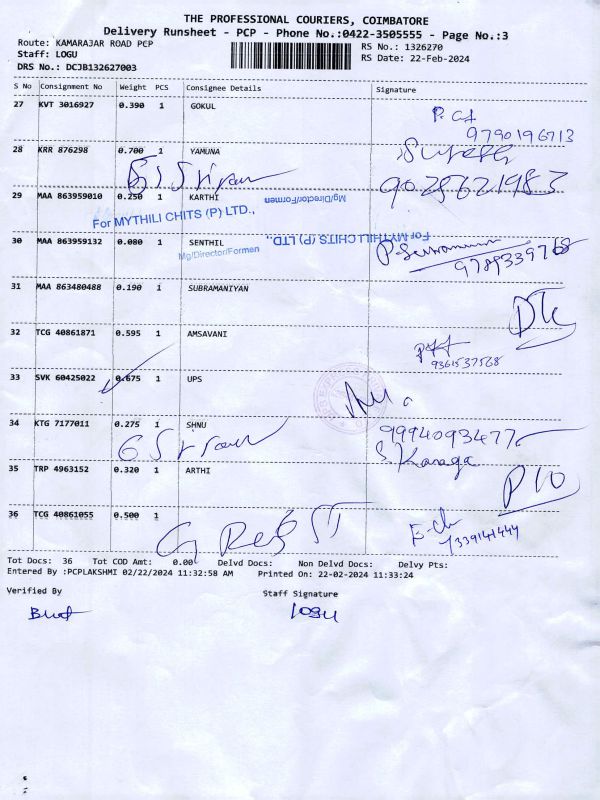 THE PROFESSIONAL COURIERS, COIMBATORE
Delivery Runsheet - PCP - Phone No.:0422-3505555 - Page No.:3
Route: KAMARAJAR ROAD PCP
RS No.: 1326270
Staff: LOGU
RS Date: 22-Feb-2024
DRS No.: DCJB132627003
S No Consignment No Weight PCS Consignee Details Signature
27 KVT 3016927 0.390 1 GOKUL
9790196713
28 KRR 876298 0.700 1 YAMUNA
Suresh
9025621983
29 MAA 863959010 0.250 1 KARTHI
Mg/Director/Formen
For MYTHILI CHITS (P) LTD.,
For MYTHILI CHITS (P) LTD.,
30 MAA 863959132 0.080 1 SENTHIL
Mg/Director/Formen
9789339768
31 MAA 863480488 0.190 1 SUBRAMANIYAN
32 TCG 40861871 0.595 1 AMSAVANI
9361537568
33 SVK 60425022 0.675 1 UPS
34 KTG 7177011 0.275 1 SHNU
9994093477
S. Kanaga
35 TRP 4963152 0.320 1 ARTHI
36 TCG 40861055 0.500 1
7339141444
Tot Docs: 36 Tot COD Amt: 0.00 Delvd Docs: Non Delvd Docs: Delvy Pts:
Entered By :PCPLAKSHMI 02/22/2024 11:32:58 AM Printed On: 22-02-2024 11:33:24
Verified By Staff Signature
logu